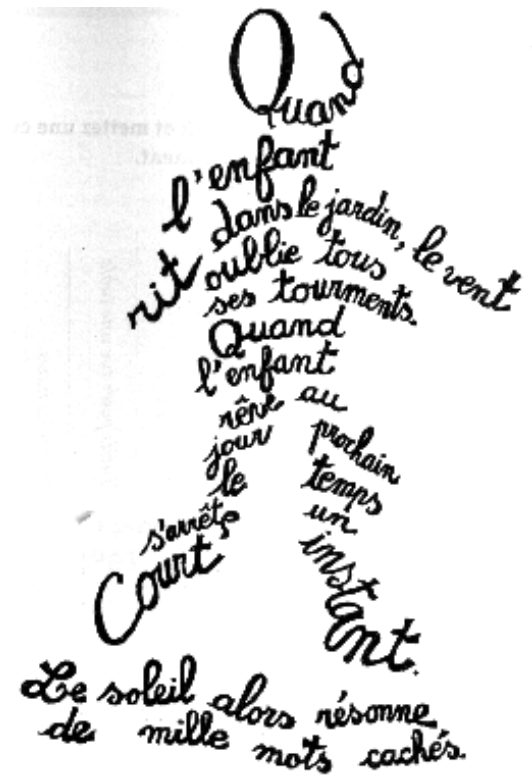 Quand
l'enfant
rit dans le jardin, le vent
oublie tous
ses tourments.
Quand
l'enfant
rêve au
prochain
jour
le temps
s'arrête un
Court instant.
Le soleil alors résonne
de mille mots cachés.